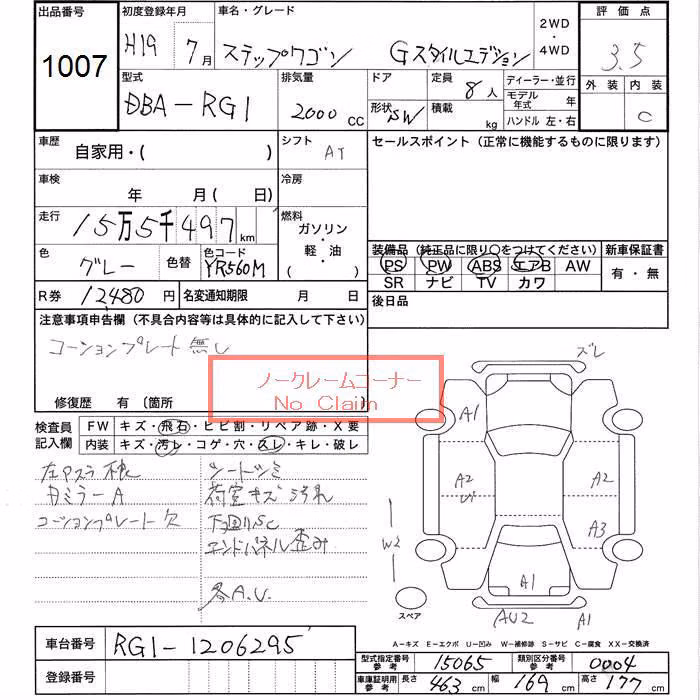 出品番号 初度登録年月 車名・グレード 2WD・4WD 評価点
1007 H19 7月 ステップワゴン Gスタイルエディション 3.5
型式 排気量 ドア 定員 ディーラー・並行 外装 内装
DBA-RG1 2000 CC 形状 SW 8人 積載 kg モデル年式 年 ハンドル 左・右 C
車歴 自家用・( ) シフト AT セールスポイント(正常に機能するものに限ります)
車検 年 月( 日) 冷房
走行 15万5千497km 燃料 ガソリン・軽・油 ( )
色 グレー 色替 色コード YR560M
装備品(純正品に限り○をつけてください) 新車保証書
PS PW ABS エアB AW 有・無
SR ナビ TV カワ
R券 12480円 名変通知期限 月 日 後日品
注意事項申告欄(不具合内容等は具体的に記入して下さい)
コーションプレート無し
ノークレームコーナー
No Claim
修復歴 有(箇所 )
検査員記入欄 FW キズ・飛石・ヒビ割・リペア跡・X要
内装 キズ・汚レ・コゲ・穴・スレ・キレ・破レ
シートシミ
ミラーA 荷室キズ汚れ
コーションプレート欠 下回りSC
エンドパネル歪み
各A.U.
ズレ
A1
A2 A2
A3
W2
A1
スペア AU2 A1
A-キズ E-エクボ U-凹み W-補修跡 S-サビ C-腐食 XX-交換済
車台番号 RG1-1206295
型式指定番号参考 15065 類別区分番号参考 0004
登録番号
車庫証明用参考 長さ 463 cm 幅 169 cm 高さ 177 cm